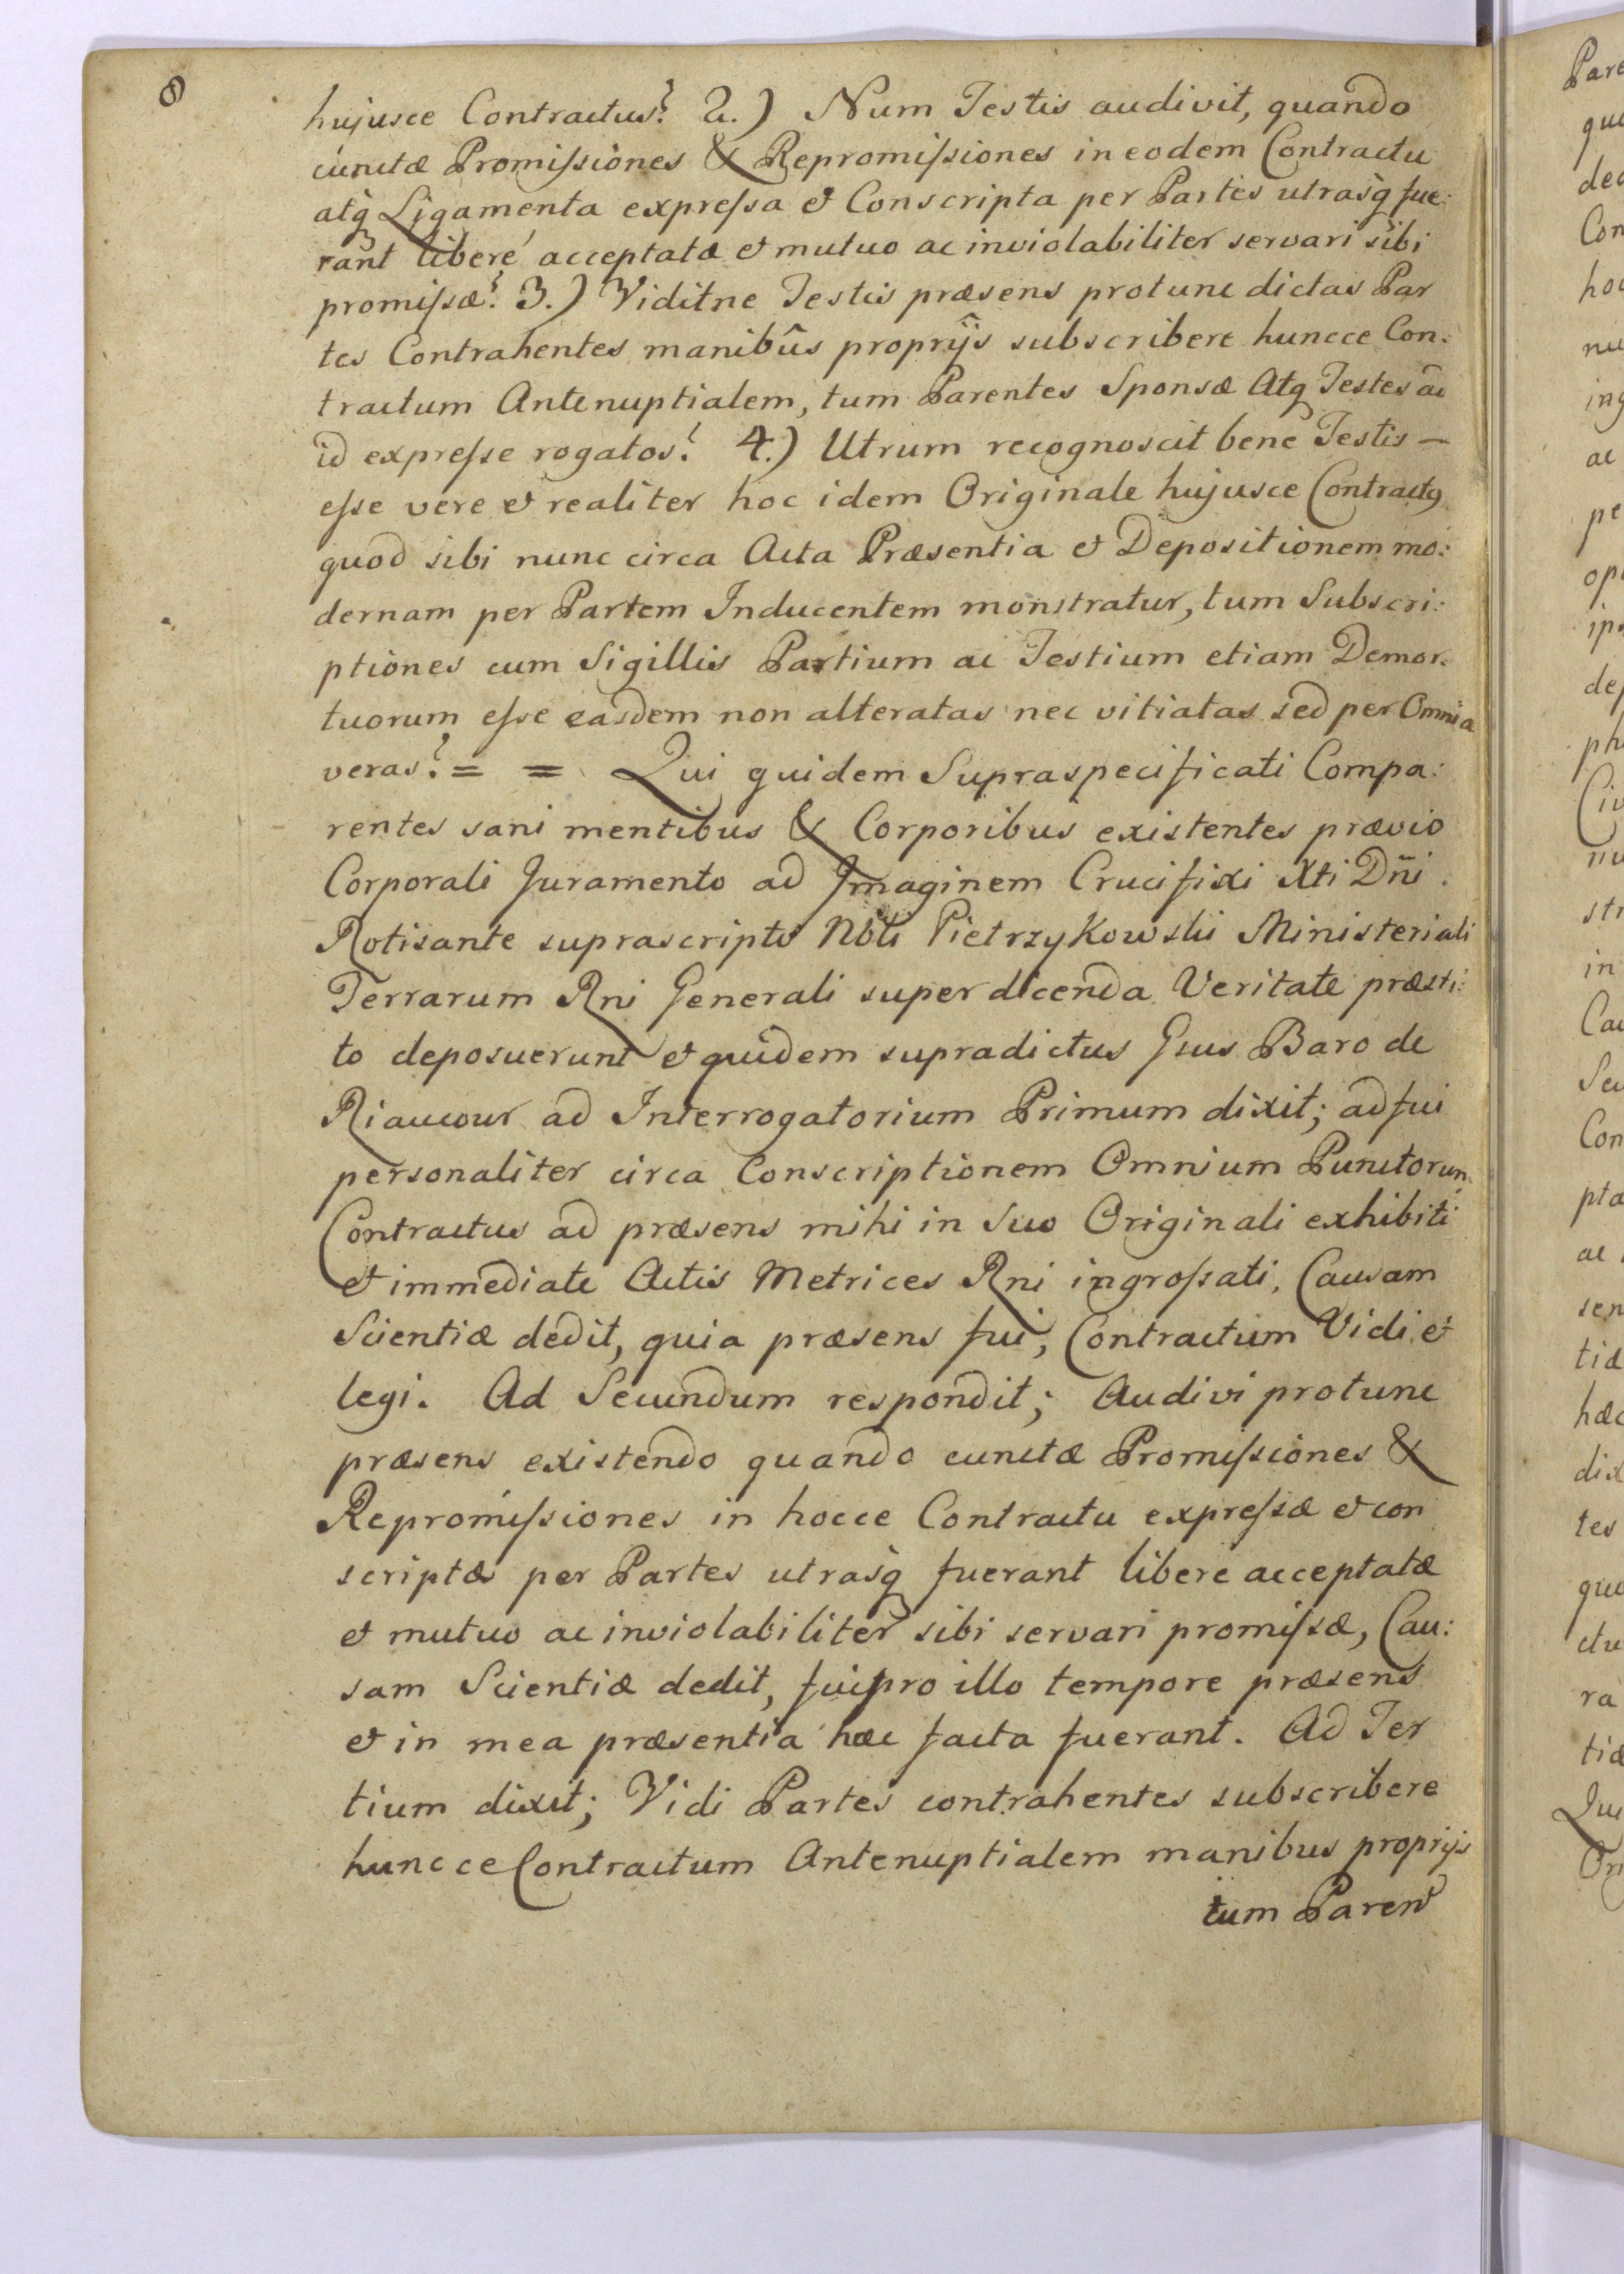 8
hujusce Contractus? 2.) Num Testis audivit, quando
cunctæ Promiſsiones & Repromiſsiones in eodem Contractu
atq Ligamenta expreſsa et Conscripta per Partes utrasq fue:
rant liberé acceptatæ et mutuo ac inviolabiliter servari sibi
promiſsæ? 3.) Viditne Testis præsens protunc dictas Par
tes Contrahentes manibûs proprÿs subscribere huncce Con:
tractum Antenuptialem, tum Parentes Sponsæ Atq Testes ad
id expreſse rogatos? 4.) Utrum recognoscit bene Testis —
eſse vere et realiter hoc idem Originale hujusce Contractq
quod sibi nunc circa Acta Præsentia et Depositionem mo:
dernam per Partem Inducentem monstratur, tum Subscri:
ptiones cum Sigillis Partium ac Testium etiam Demor:
tuorum eſse easdem non alteratas nec vitiatas sed per Omnia
veras? = = Qui quidem Supraspecificati Compa:
rentes sani mentibus & Corporibus existentes prævio
Corporali Juramento ad Imaginem Crucifixi Xti Dñi.
Rotisante suprascripto Nbli Pietrzykowski Ministeriali
Terrarum Rni Generali super dicenda Veritate præsti:
to deposuerunt et quidem supradictus Gsus Baro de
Riaucour ad Interrogatorium Primum dixit; adfui
personaliter circa Conscriptionem Omnium Punctorum
Contractus ad præsens mihi in Suo Originali exhibiti
et immediate Actis Metrices Rni ingroſsati, Causam
Scientiæ dedit, quia præsens fui, Contractum Vidi et
legi. Ad Secundum respondit; Audivi protunc
præsens existendo quando cunctæ Promiſsiones &
Repromiſsiones in hocce Contractu expreſsæ et con
scriptæ per Partes utrasq fuerant libere acceptatæ
et mutuo ac inviolabiliter sibi servari promiſsæ, Cau:
sam Scientiæ dedit, fui pro illo tempore præsens
et in mea præsentia hæc facta fuerant. Ad Ter
tium dixit; Vidi Partes contrahentes subscribere
huncce Contractum Antenuptialem manibus proprijs
tum Paren